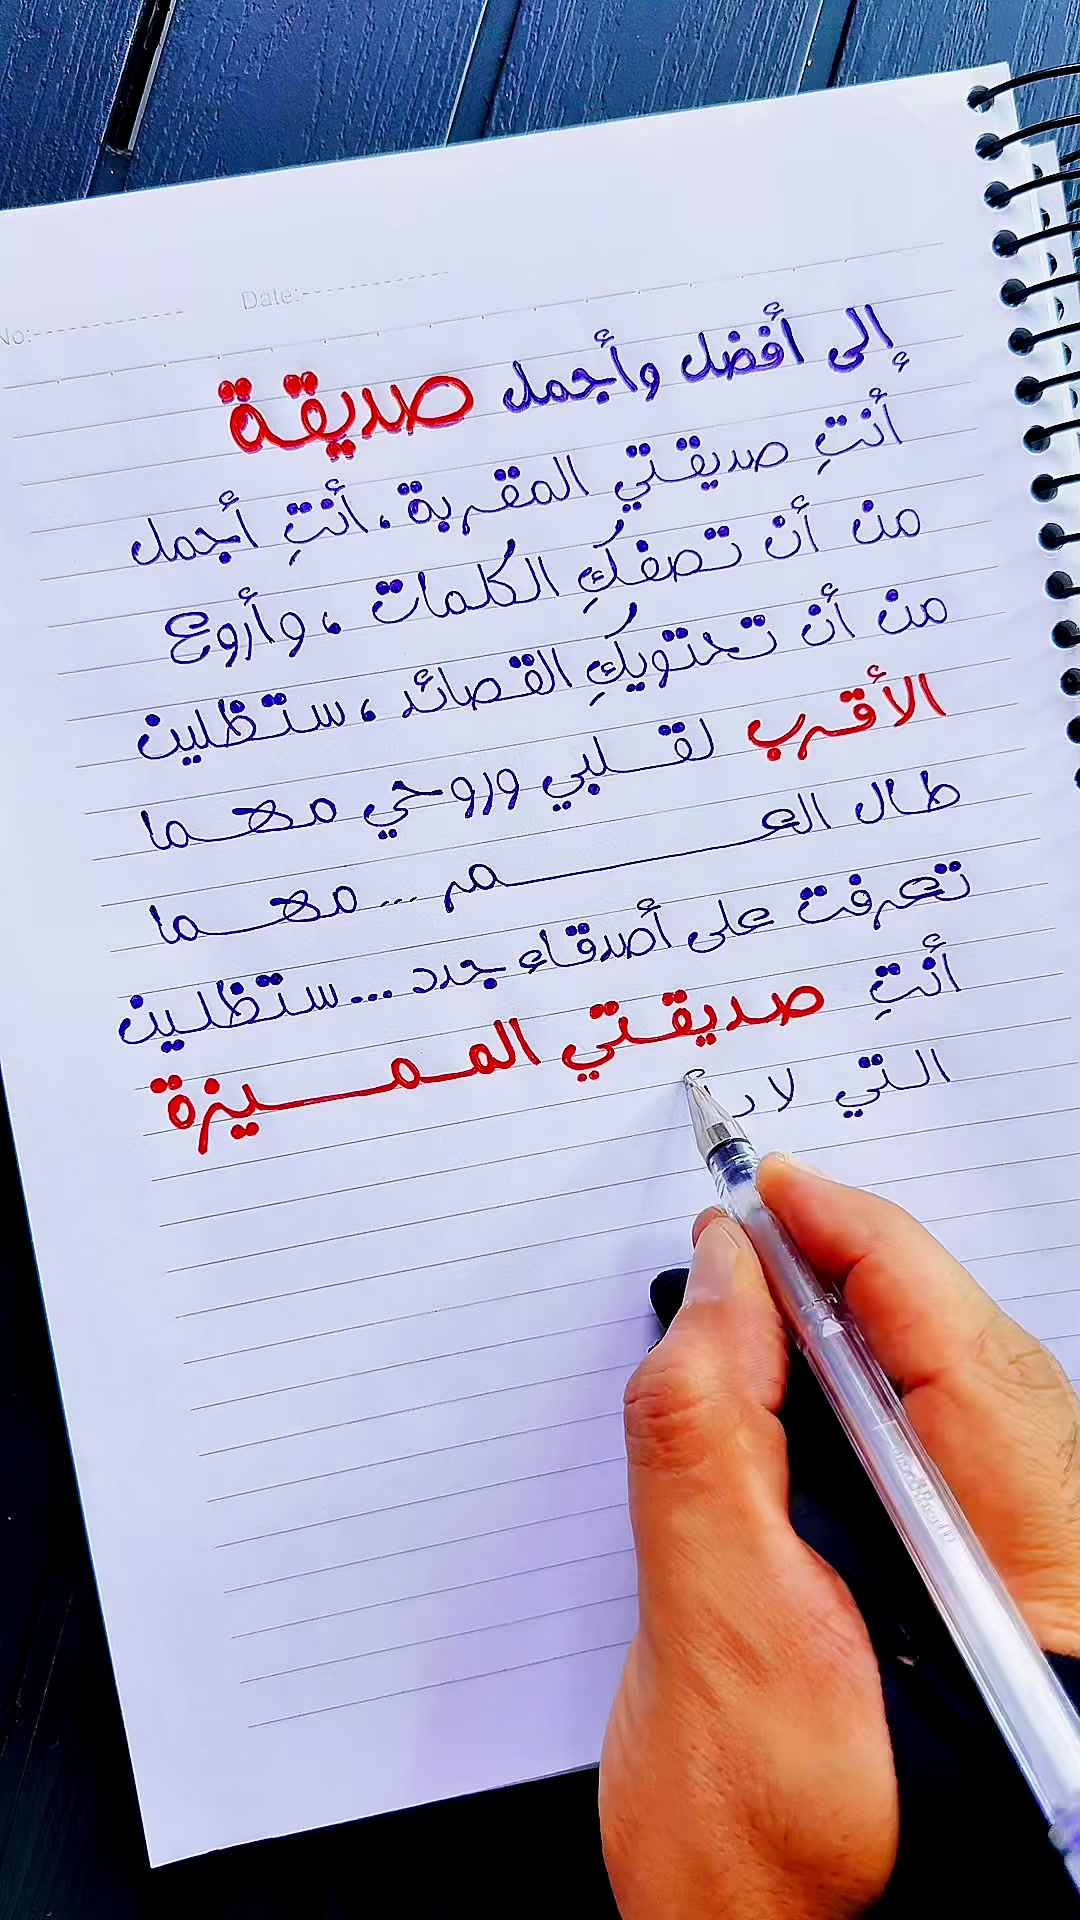 No:
Date:
إلى أفضل وأجمل صديقة
أنتِ صديقتي المقربة، أنتِ أجمل
من أن تصفكِ الكلمات، وأروع
من أن تحتويكِ القصائد، ستظلين
الأقرب لقلبي وروحي مهما
طال العمر... مهما
تعرفت على أصدقاء جدد... ستظلين
أنتِ صديقتي المميزة
التي لا